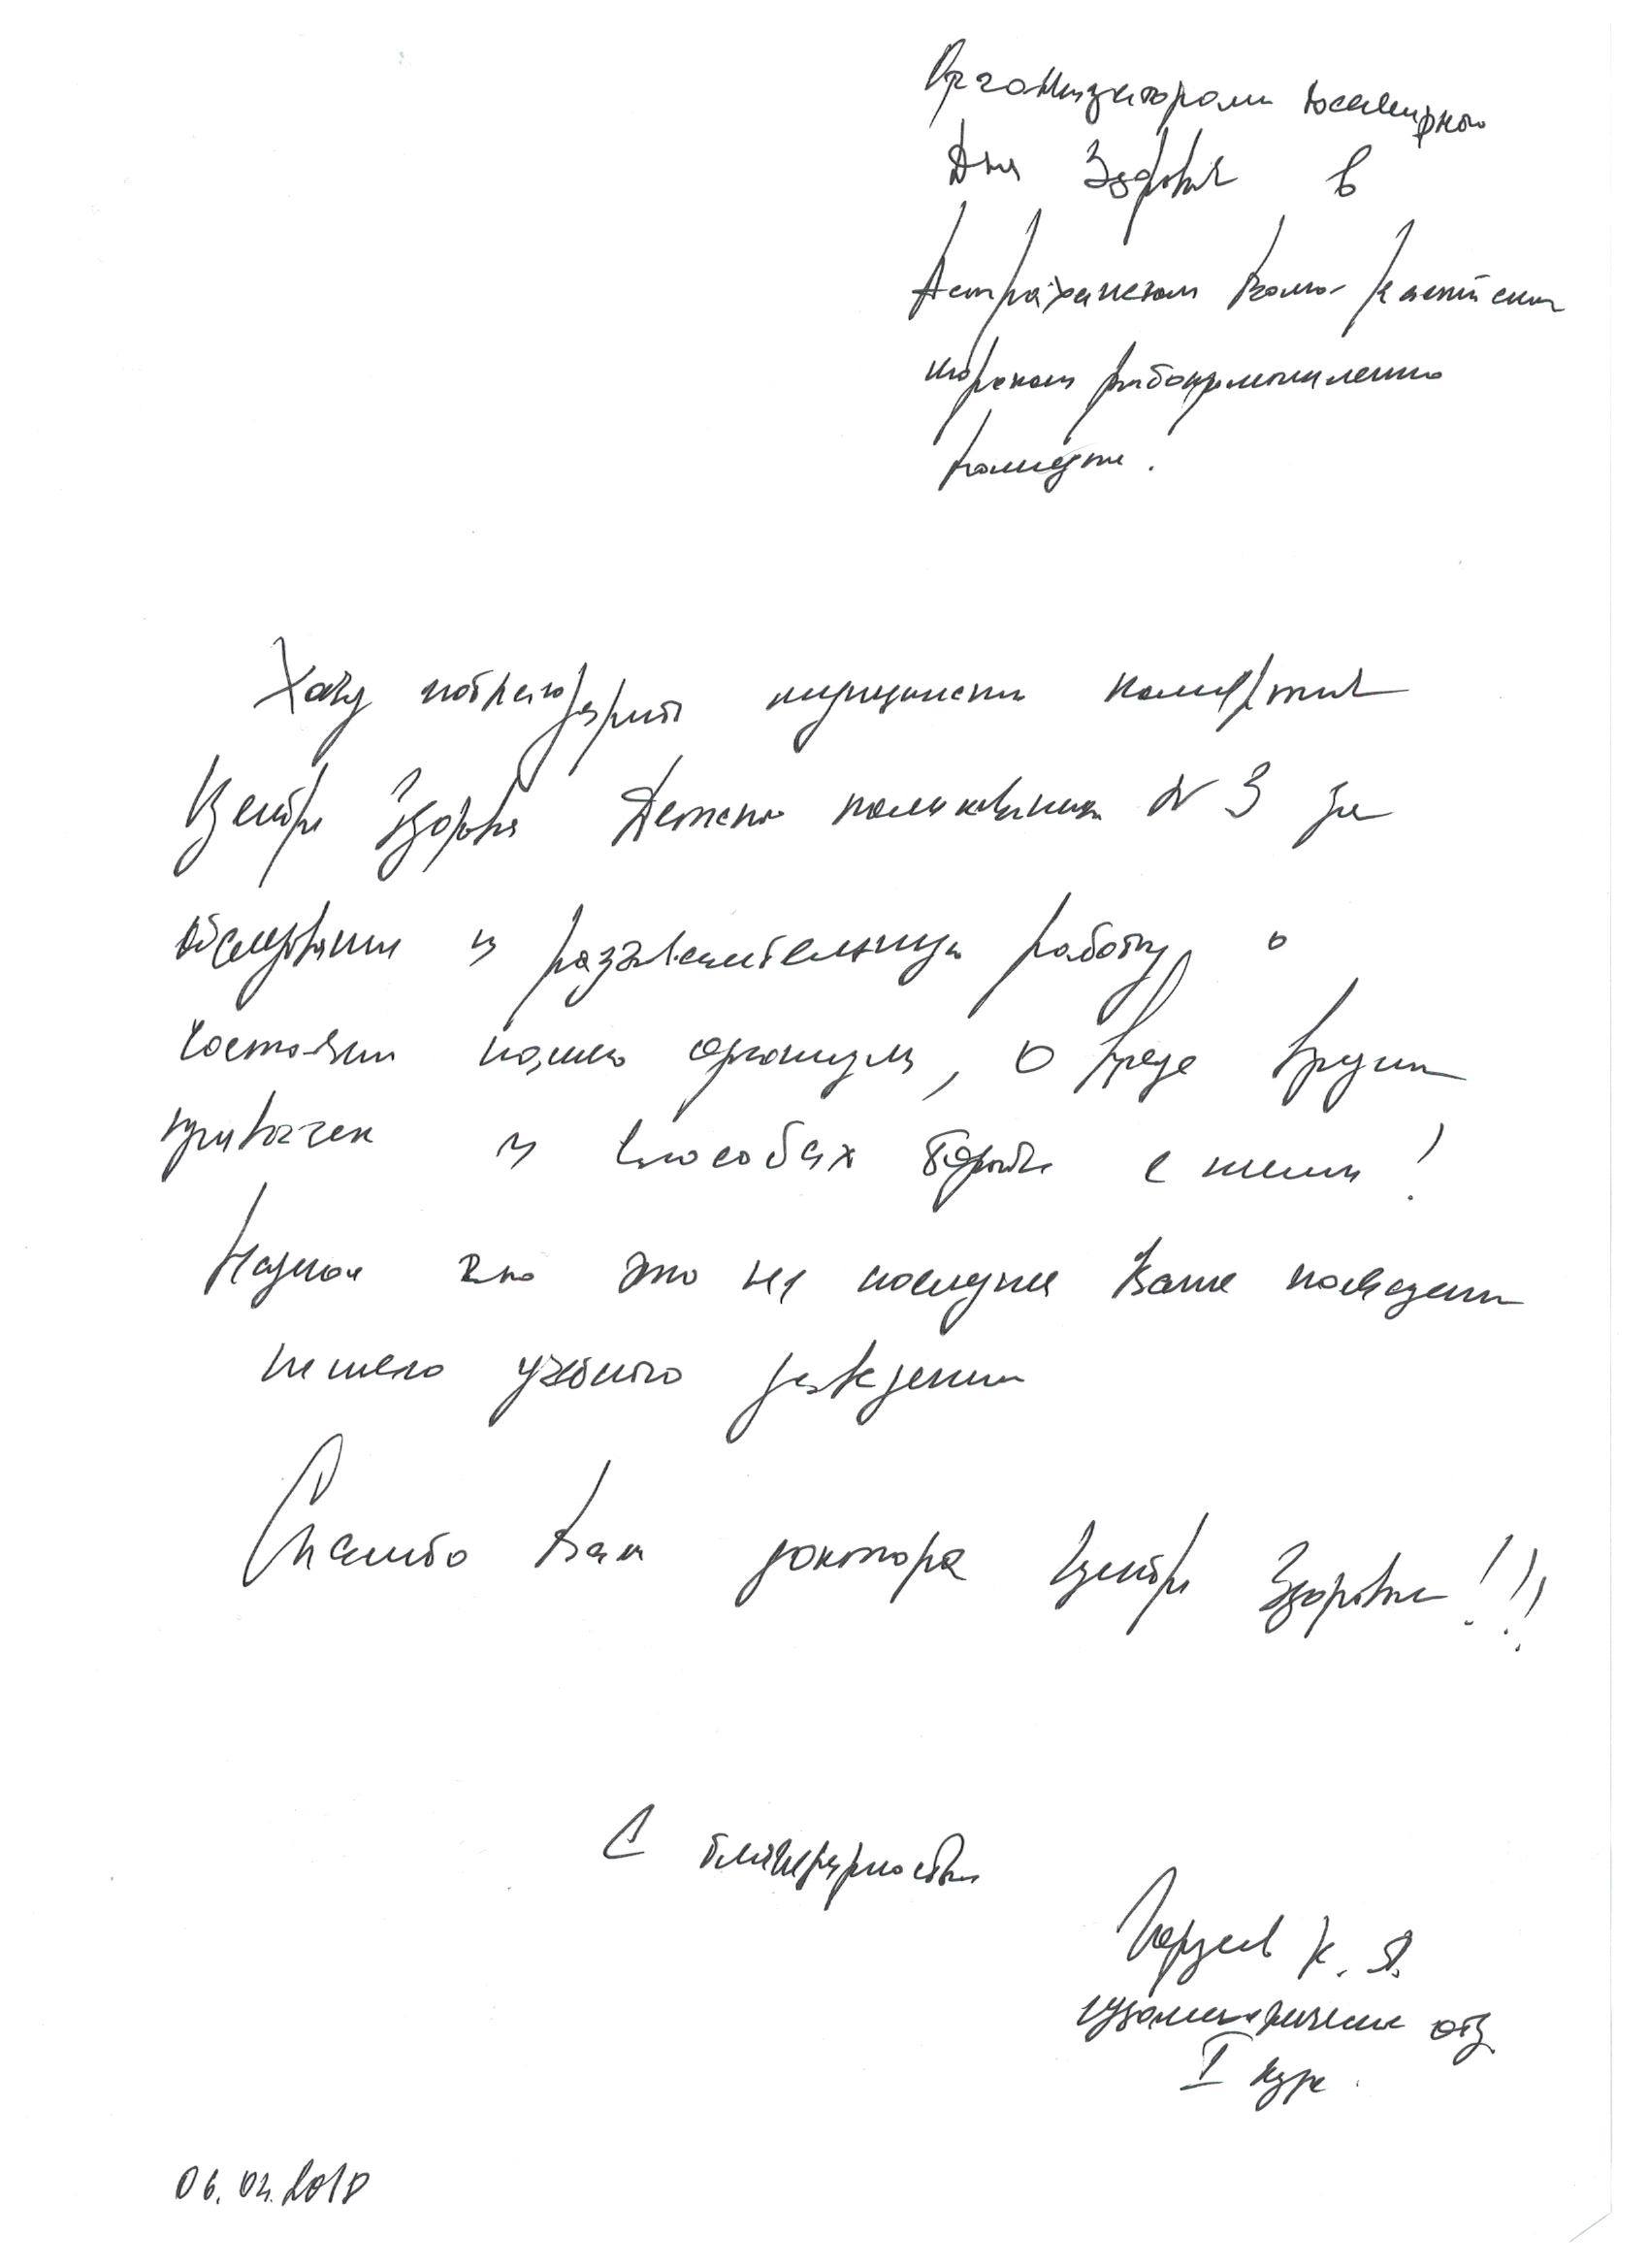 Организаторам Всемирного
Дня Здоровья в
Астраханском Волго-Каспийском
морском рыбопромышленном
колледже.
Хочу поблагодарить медицинский коллектив
Центра Здоровья Детской поликлиники № 3 за
обследование и разъяснительную работу о
состоянии нашего организма, о вреде вредных
привычек и способах борьбы с ними!
Надеюсь что это не последнее Ваше посещение
нашего учебного заведения
Спасибо Вам доктора Центра Здоровья!!!
С благодарностью
К. Я.
отд.
I курс.
06.04.2018